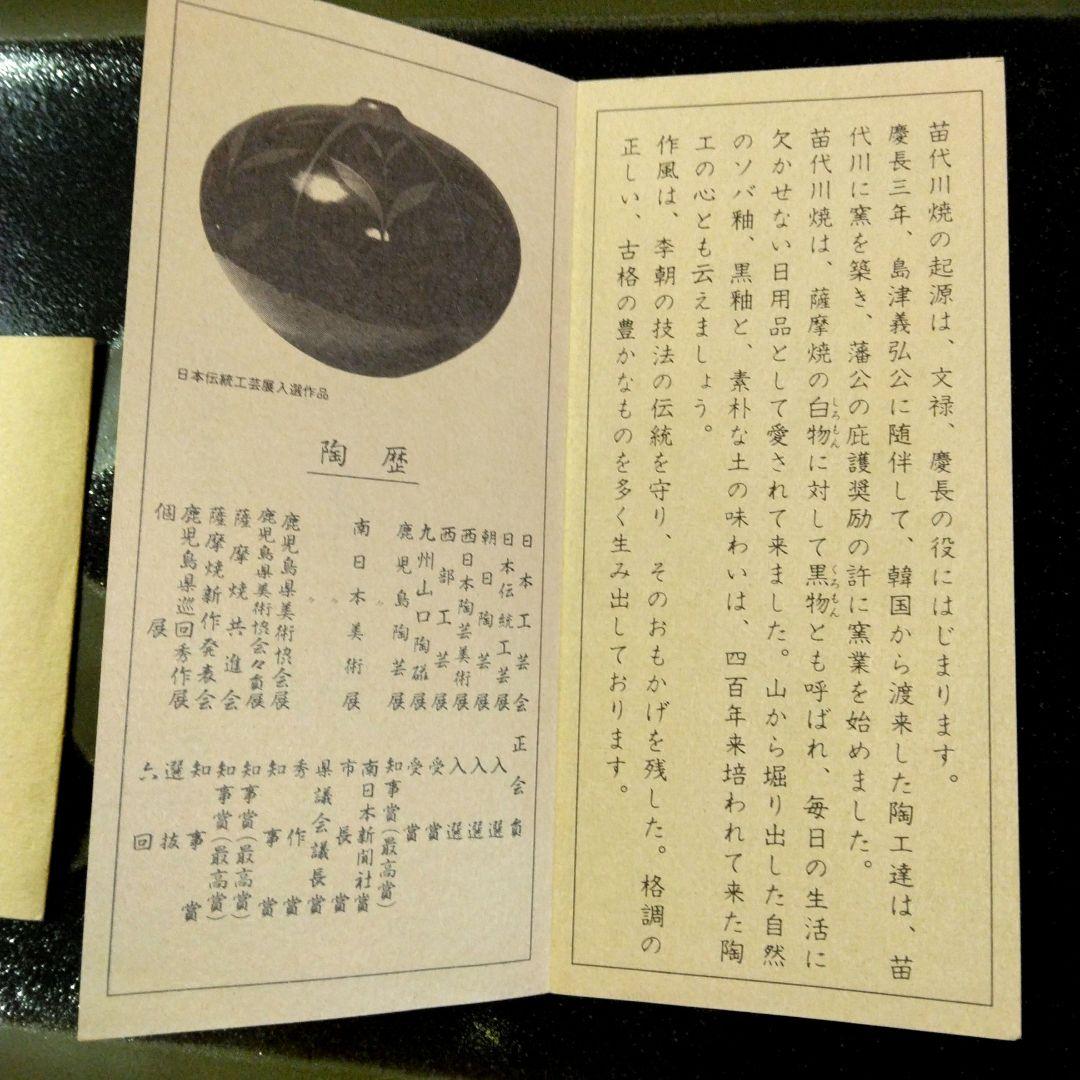 苗代川焼の起源は、文禄、慶長の役にはじまります。
慶長三年、島津義弘公に随伴して、韓国から渡来した陶工達は、苗
代川に窯を築き、藩公の庇護奨励の許に窯業を始めました。
しろもん
くろもん
苗代川焼は、薩摩焼の白物に対して黒物とも呼ばれ、毎日の生活に
欠かせない日用品として愛されて来ました。山から堀り出した自然
のソバ釉、黒釉と、素朴な土の味わいは、四百年来培われて来た陶
工の心とも云えましょう。
作風は、李朝の技法の伝統を守り、そのおもかげを残した。格調の
正しい、古格の豊かなものを多く生み出しております。
日本伝統工芸展入選作品
陶歴
日本工芸会正会員
日本伝統工芸展 入選
朝日陶芸展 入選
西日本陶芸美術展 入選
西部工芸展 受賞
九州山口陶磁展 受賞
鹿児島陶芸展 知事賞(最高賞)
〃 南日本新聞社賞
南日本美術展 市長賞
〃 県議会議長賞
〃 秀作賞
鹿児島県美術協会展 知事賞
鹿児島県美術協会々員展 知事賞(最高賞)
薩摩焼共進会 知事賞(最高賞)
薩摩焼新作発表会 知事賞
鹿児島県巡回秀作展 選抜
個展 六回